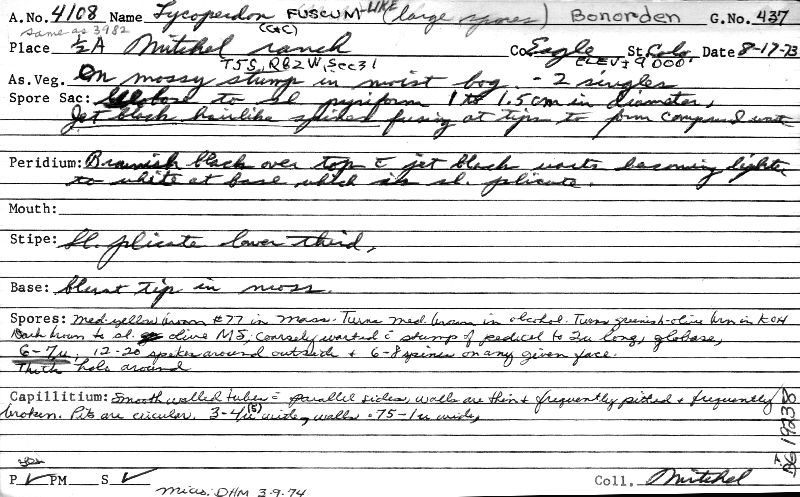 A.No. 4108 Name Lycoperdon FUSCUM-LIKE (large spores) Bonorden G.No. 437
same as 3982 (C&C)
Place ½A Mitchel ranch Co. Eagle St. Colo. Date 8-17-73
T5S, R82W, Sec 31 ELEV: 9000'
As.Veg. On mossy stump in moist bog. - 2 singles
Spore Sac: Globose to sl pyriform 1 to 1.5 cm in diameter,
Jet black hairlike spines fusing at tips to form compound warts
Peridium: Brownish black over top c̄ jet black warts becoming lighter
to white at base which is sl. plicate.
Mouth:
Stipe: Sl. plicate lower third,
Base: blunt tip in moss.
Spores: Med yellow brown #77 in mass. Turns med brown in alcohol. Turns greenish-olive brn in KOH
Dark brown to sl. olive M5, coarsely warted c̄ stump of pedicel to 2u long, globose,
6-7u, 12-20 spokes around outside & 6-8 spines on any given face.
halo around
Capillitium: Smooth walled tubes c̄ parallel sides, walls are thin & frequently pitted & frequently
broken. Pits are circular. 3-4u (5) wide, walls .75-1u wide,
P ✓ PM S ✓ Coll. Mitchel
Micro. DHM 3-9-74
DBG 19238